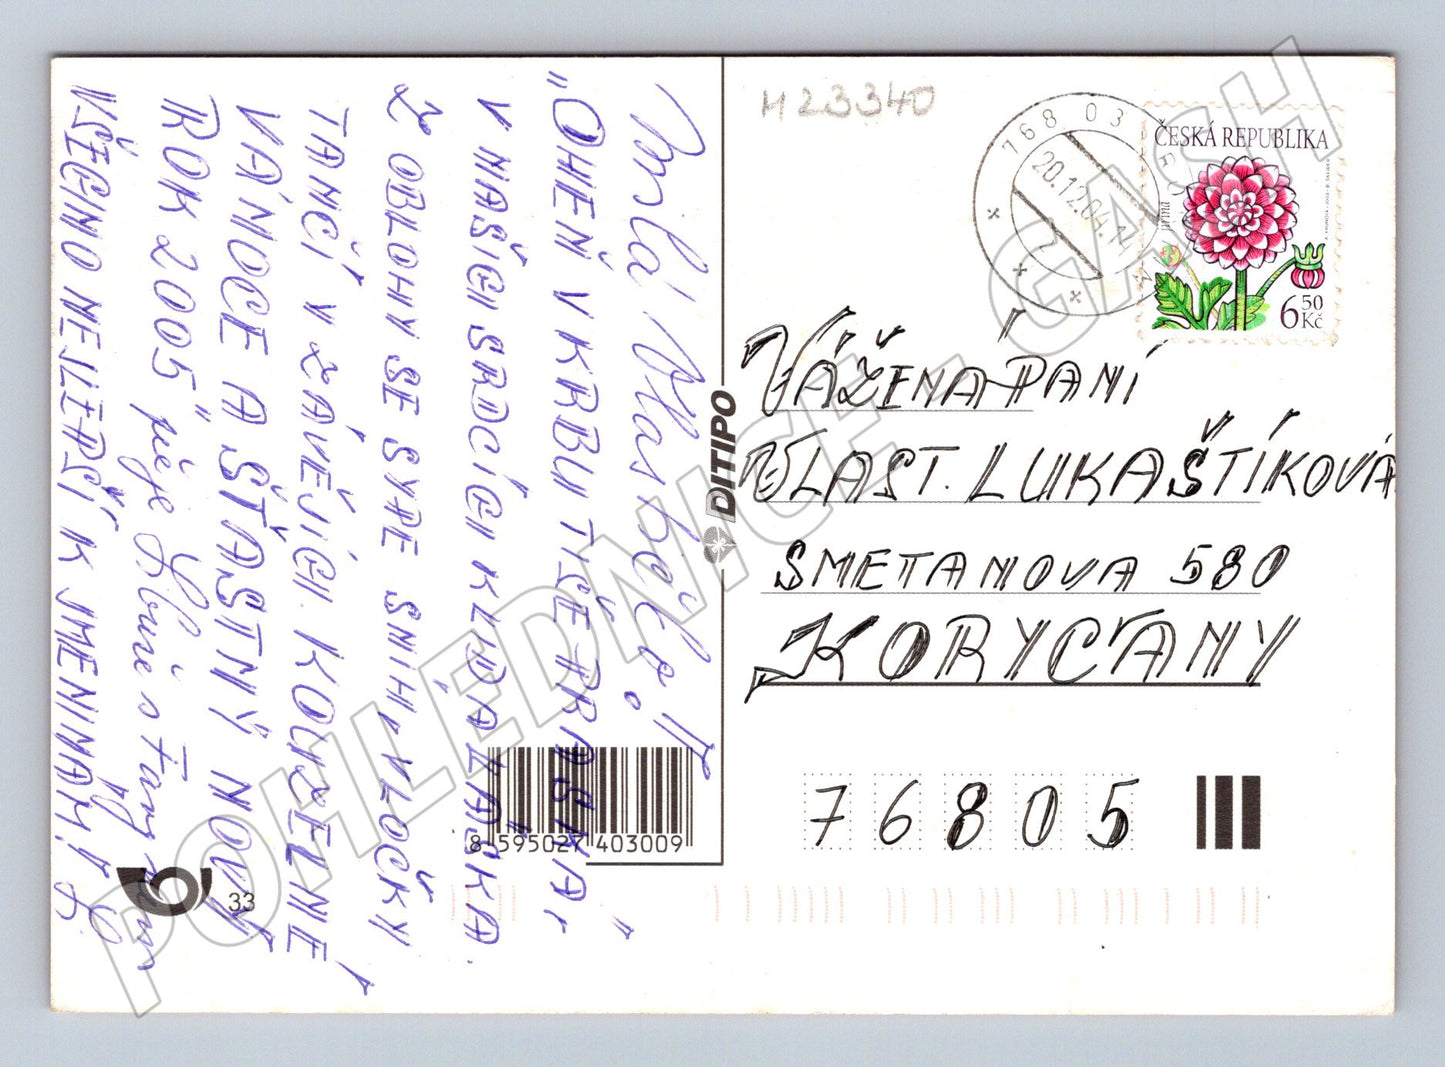 Milá Vlastičko!!
"OHEŇ V KRBU TIŠE PRASKÁ,
V NAŠICH SRDCÍCH KLID A LÁSKA.
Z OBLOHY SE SYPE SNÍH, VLOČKY
TANČÍ V ZÁVĚJÍCH. KOUZELNÉ
VÁNOCE A ŠŤASTNÝ NOVÝ
ROK 2005" přeje
VŠECHNO NEJLEPŠÍ K JMENINÁM!
H23340
768 03
20.12.04
ČESKÁ REPUBLIKA
Jiřina
6 50 Kč
VÁŽENÁ PANÍ
VLAST. LUKAŠTÍKOVÁ
SMETANOVA 580
KORYČANY
76805
DITIPO
8 595027 403009
33
POHLEDNICE - GASH